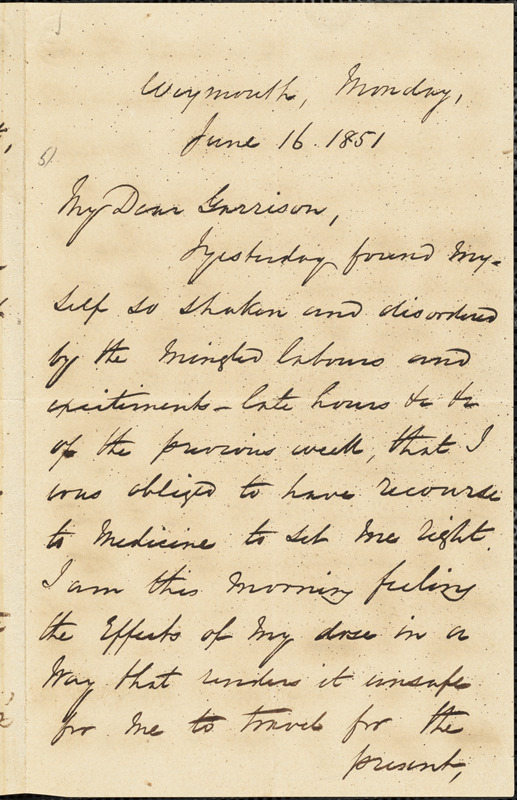 Weymouth, Monday,
June 16. 1851
My Dear Garrison,
I yesterday found my-
self so shaken and disordered
by the mingled labours and
excitements - late hours &c &c
of the previous week, that I
was obliged to have recourse
to medicine to set me right.
I am this morning feeling
the Effects of my dose in a
Way that renders it unsafe
for me to travel for the
present,